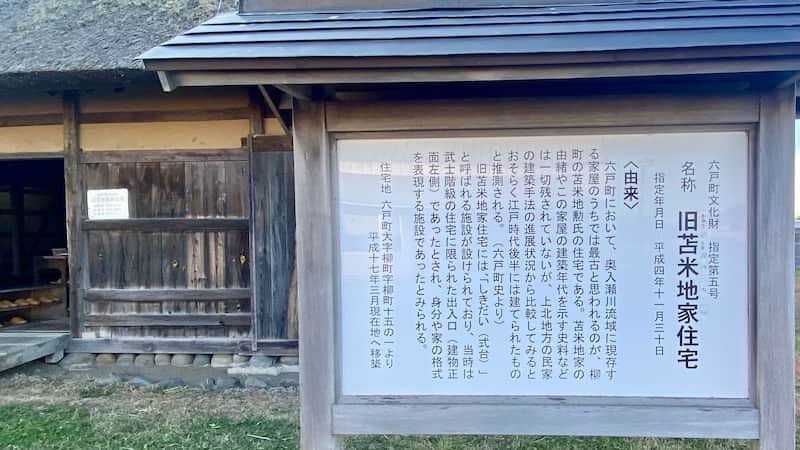 六戸町文化財 指定第五号
名称 旧苫米地家住宅
指定年月日 平成四年十一月三十日
〈由来〉
六戸町において、奥入瀬川流域に現存す
る家屋のうちでは最古と思われるのが、柳
町の苫米地勲氏の住宅である。苫米地家の
由緒やこの家屋の建築年代を示す史料など
は一切残されていないが、上北地方の民家
の建築手法の進展状況から比較してみると
おそらく江戸時代後半には建てられたもの
と推測される。（六戸町史より）
旧苫米地家住宅には、「しきだい（式台）」
と呼ばれる施設が設けられており、当時は
武士階級の住宅に限られた出入口（建物正
面左側）であったとされ、身分や家の格式
を表現する施設であったとみられる。
住宅地 六戸町大字柳町字柳町十五の一より
平成十七年三月現在地へ移築